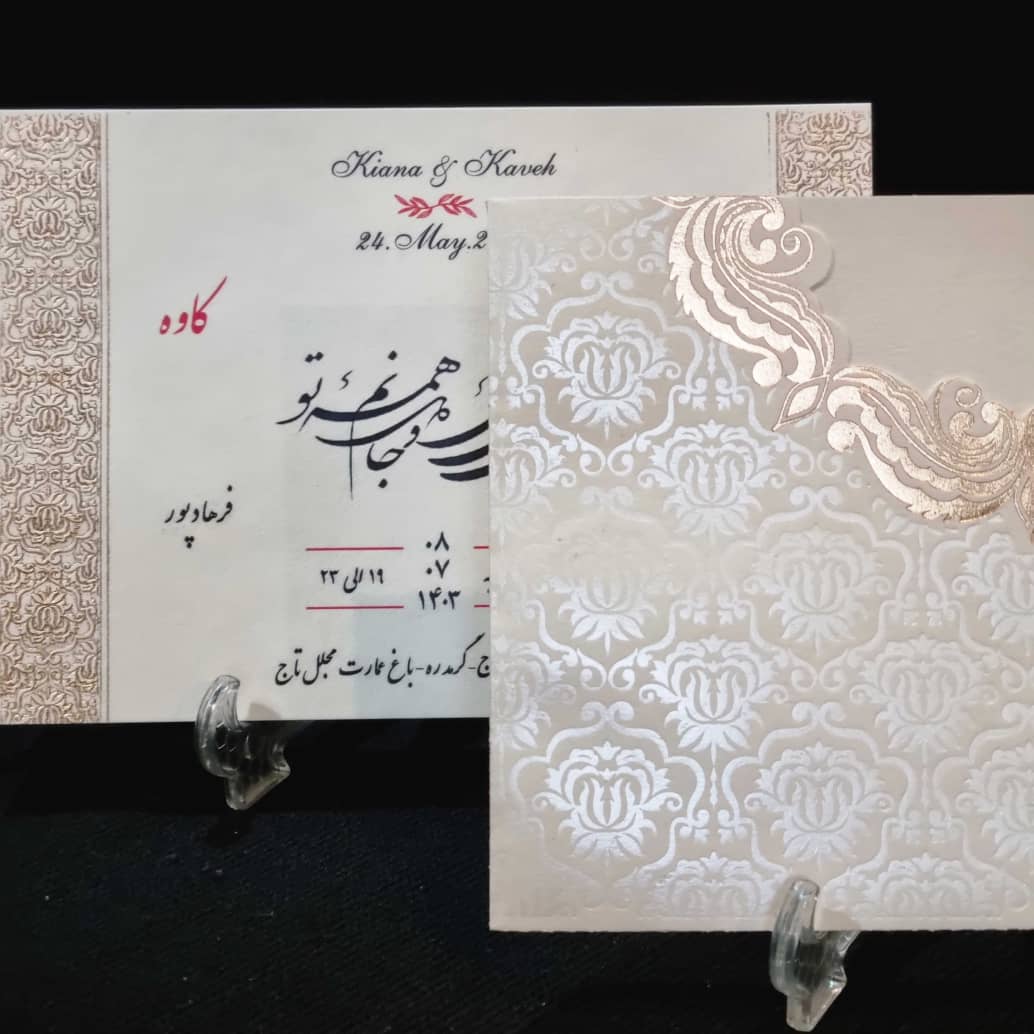 Kiana & Kaveh
24.May.2
کاوه
همه تو
فرهادپور
۰۸
۱۹ الی ۲۳
۰۷
۱۴۰۳
ج-گرمدره-باغ عمارت مجلل تاج